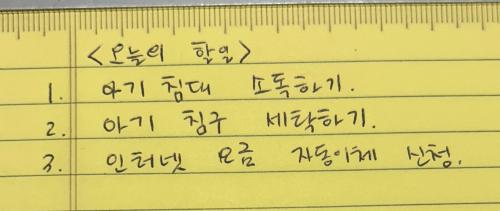 <오늘의 할일>
1. 아기 침대 소독하기.
2. 아기 침구 세탁하기.
3. 인터넷 요금 자동이체 신청.